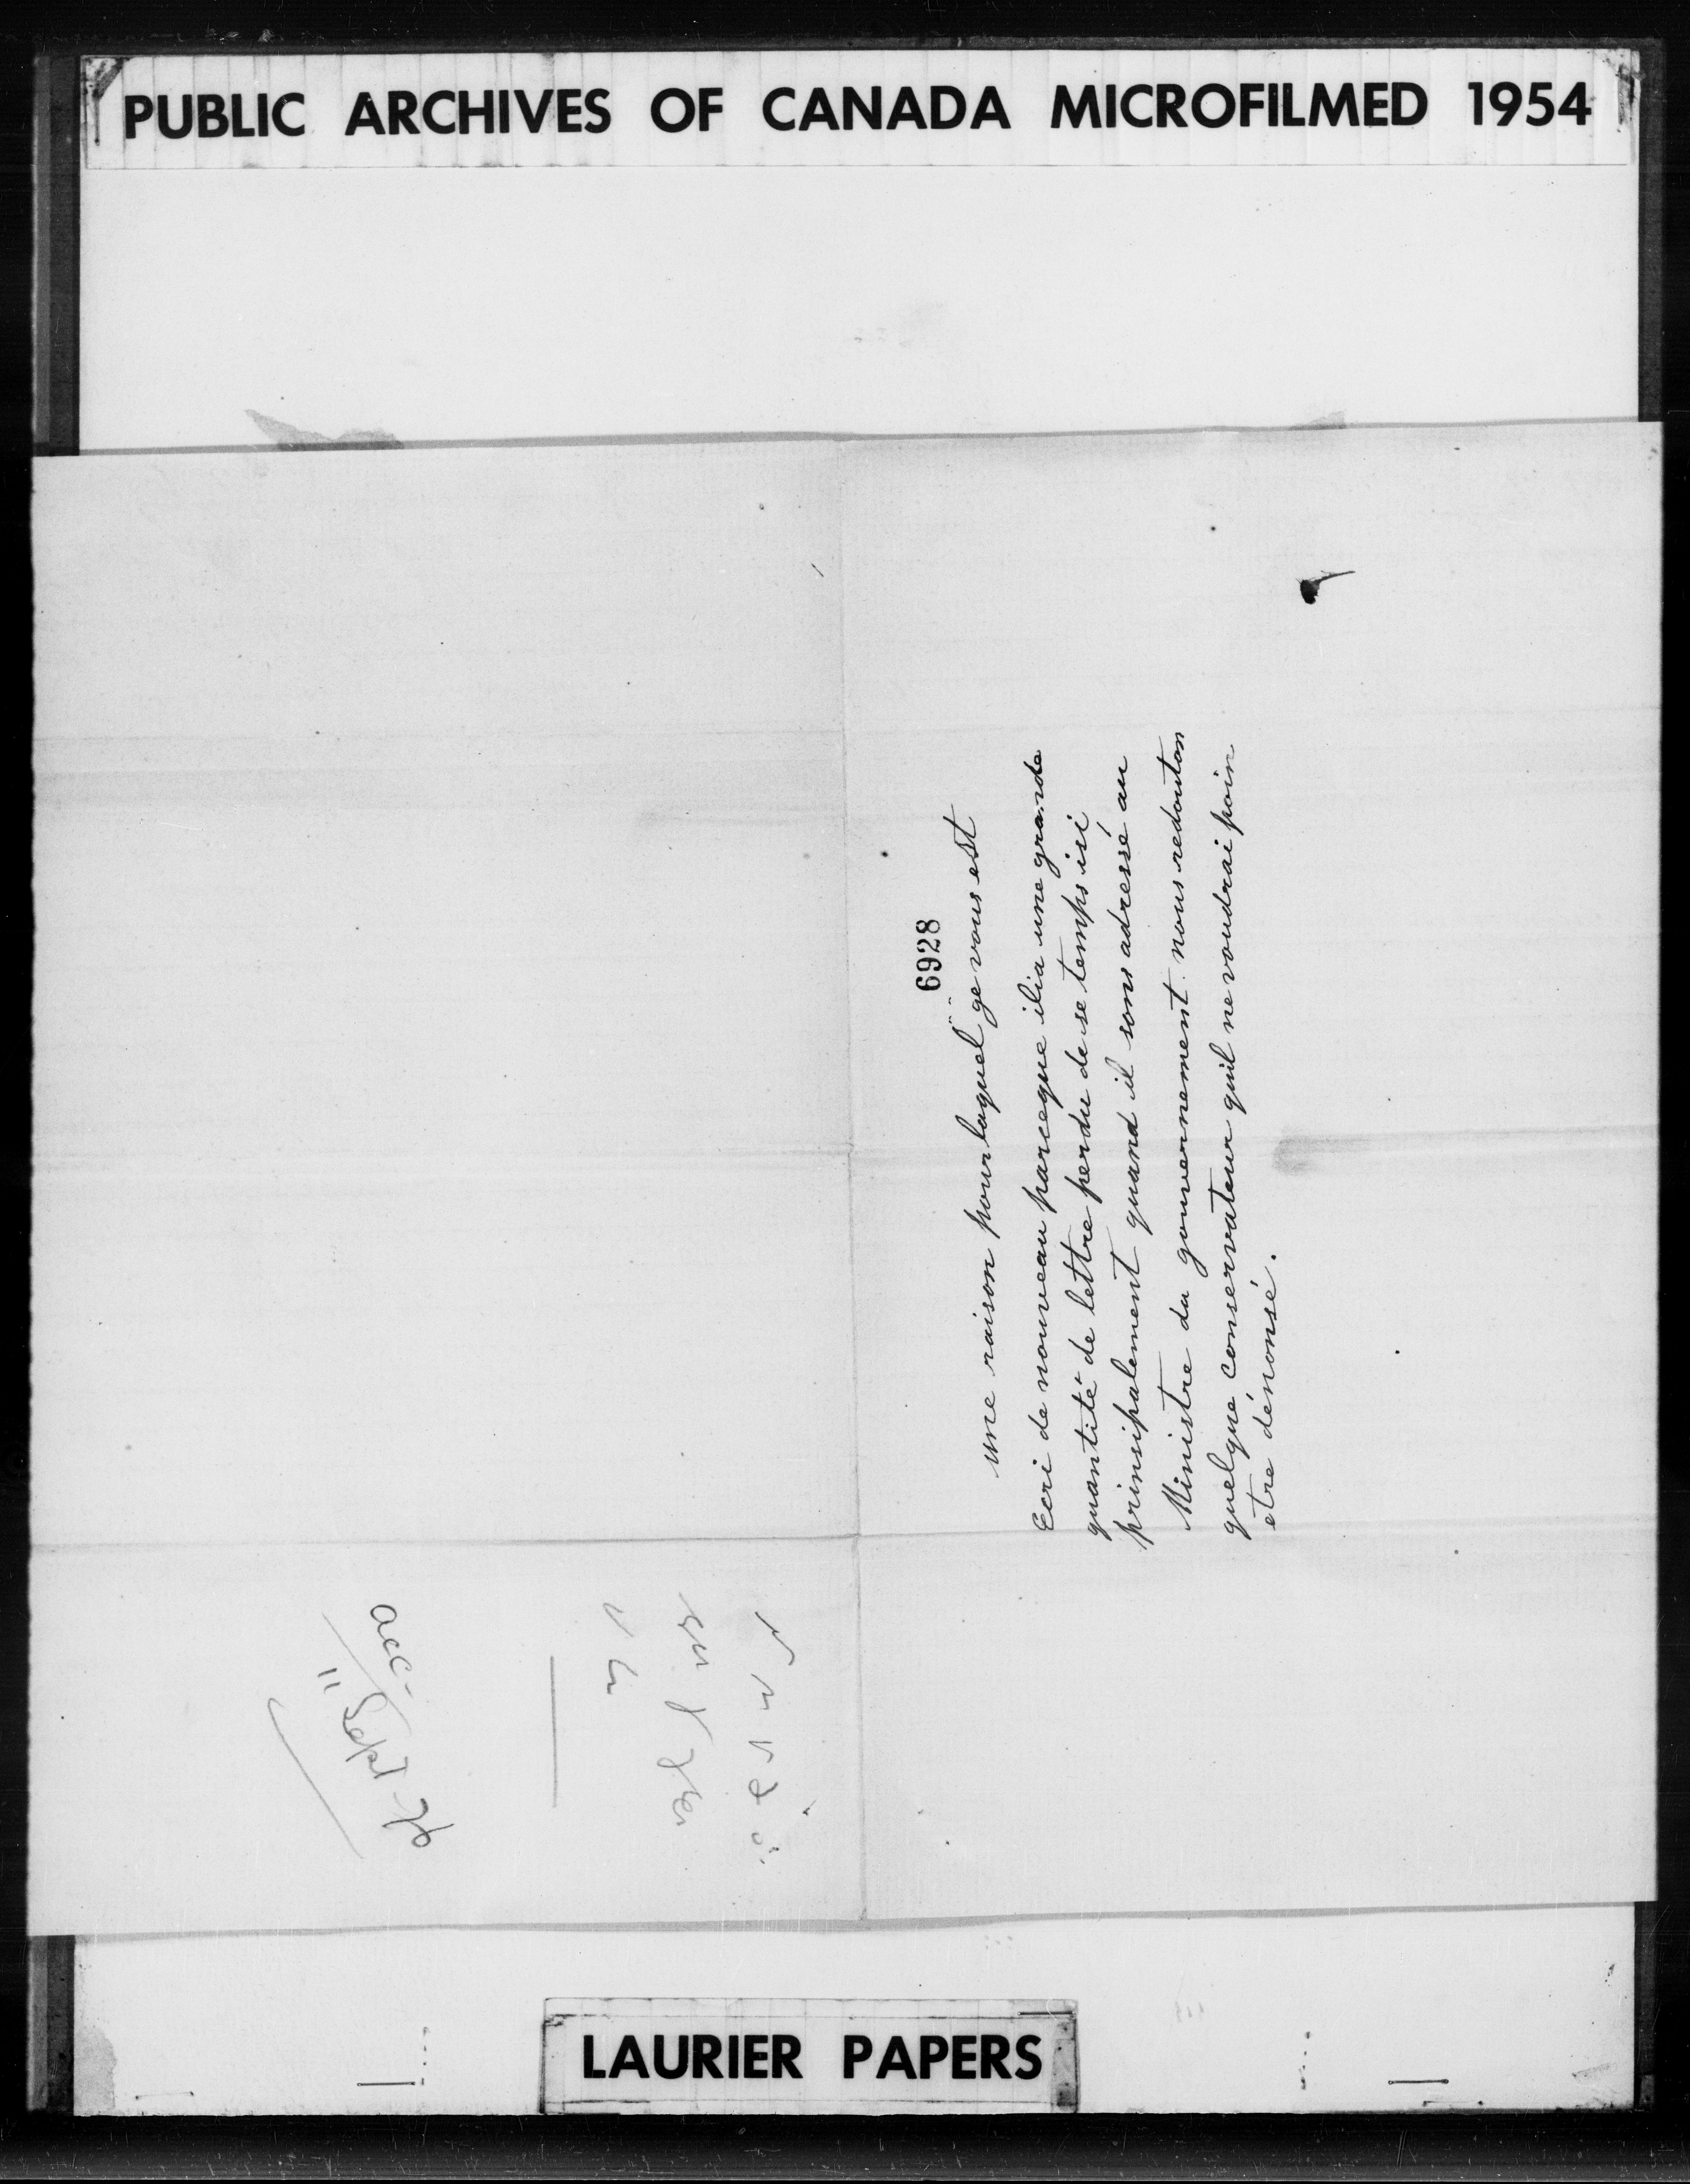 PUBLIC ARCHIVES OF CANADA MICROFILMED 1954
6928
une raison pour laquel ge vous est
Ecri de nouveau parceque ilia une grande
quantité de lettre perdu de se temps isi
prinsipalement quand il sons adressé au
Ministre du gouvernement nous redouton
quelque conservateur quil ne voudrai poin
etre dénonsé.
acc-
Sept
11
LAURIER PAPERS